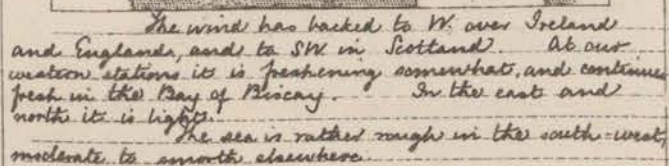 The wind has backed to W. over Ireland
and England, and to SW. in Scotland. At our
western stations it is freshening somewhat, and continues
fresh in the Bay of Biscay. In the east and
north it is light.
The sea is rather rough in the south-west,
moderate to smooth elsewhere.